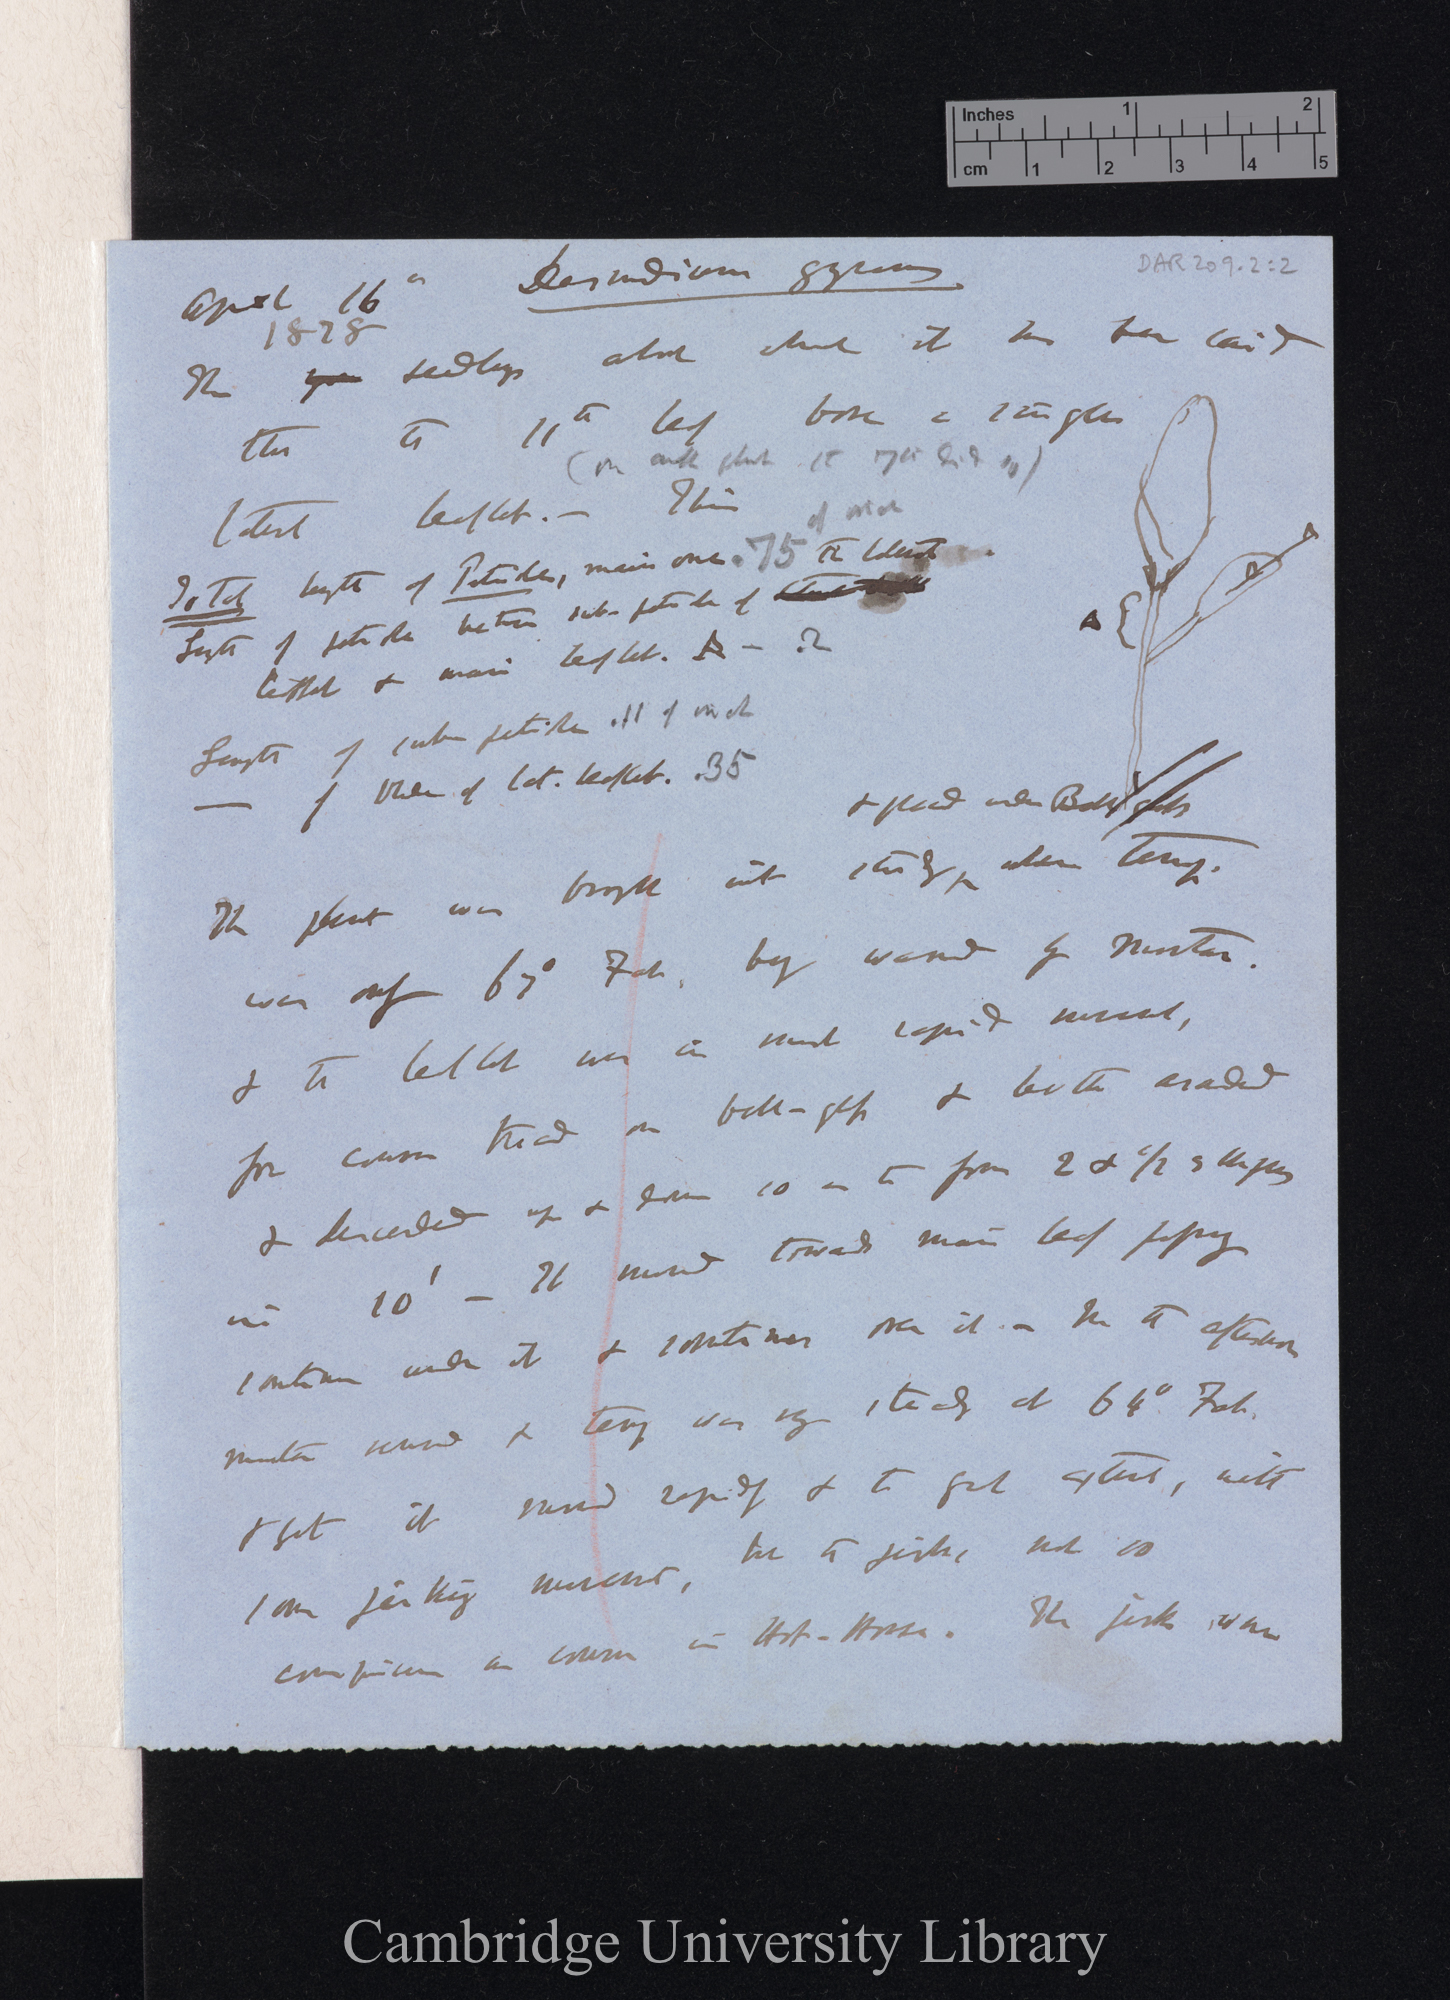 Inches 1 2
cm 1 2 3 4 5
DAR 209.2:2
April 16th Desmodium gyrans
1878
The seedlings about which it has been said
that the 11th leaf bore a single
(on another plant it did so)
lateral leaflet. — This
Total length of Petiole, main one .75 of inch the
Length of petiole between sub-petiole of
leaflet & main leaflet. A — .2
A
Length of sub petiole .11 of inch
— of blade of lat. leaflet. .35
& placed under Bell glass
The plant was brought into study, where temp.
was only 67° Fah, being warmed by
& the leaflet was in much rapid movement,
for common thread on bell-glass & leaf then ascended
& descended up & down so as to form 2 & 1/2
in 10' — It moved towards main leaf passing
sometimes under it & sometimes over it — In the afternoon
removed & temp was very steady at 64° Fah.
& yet it moved rapidly & to great extent, with
some jerking movement, but the jerks not so
conspicuous as common in Hot-House. The jerks were
Cambridge University Library